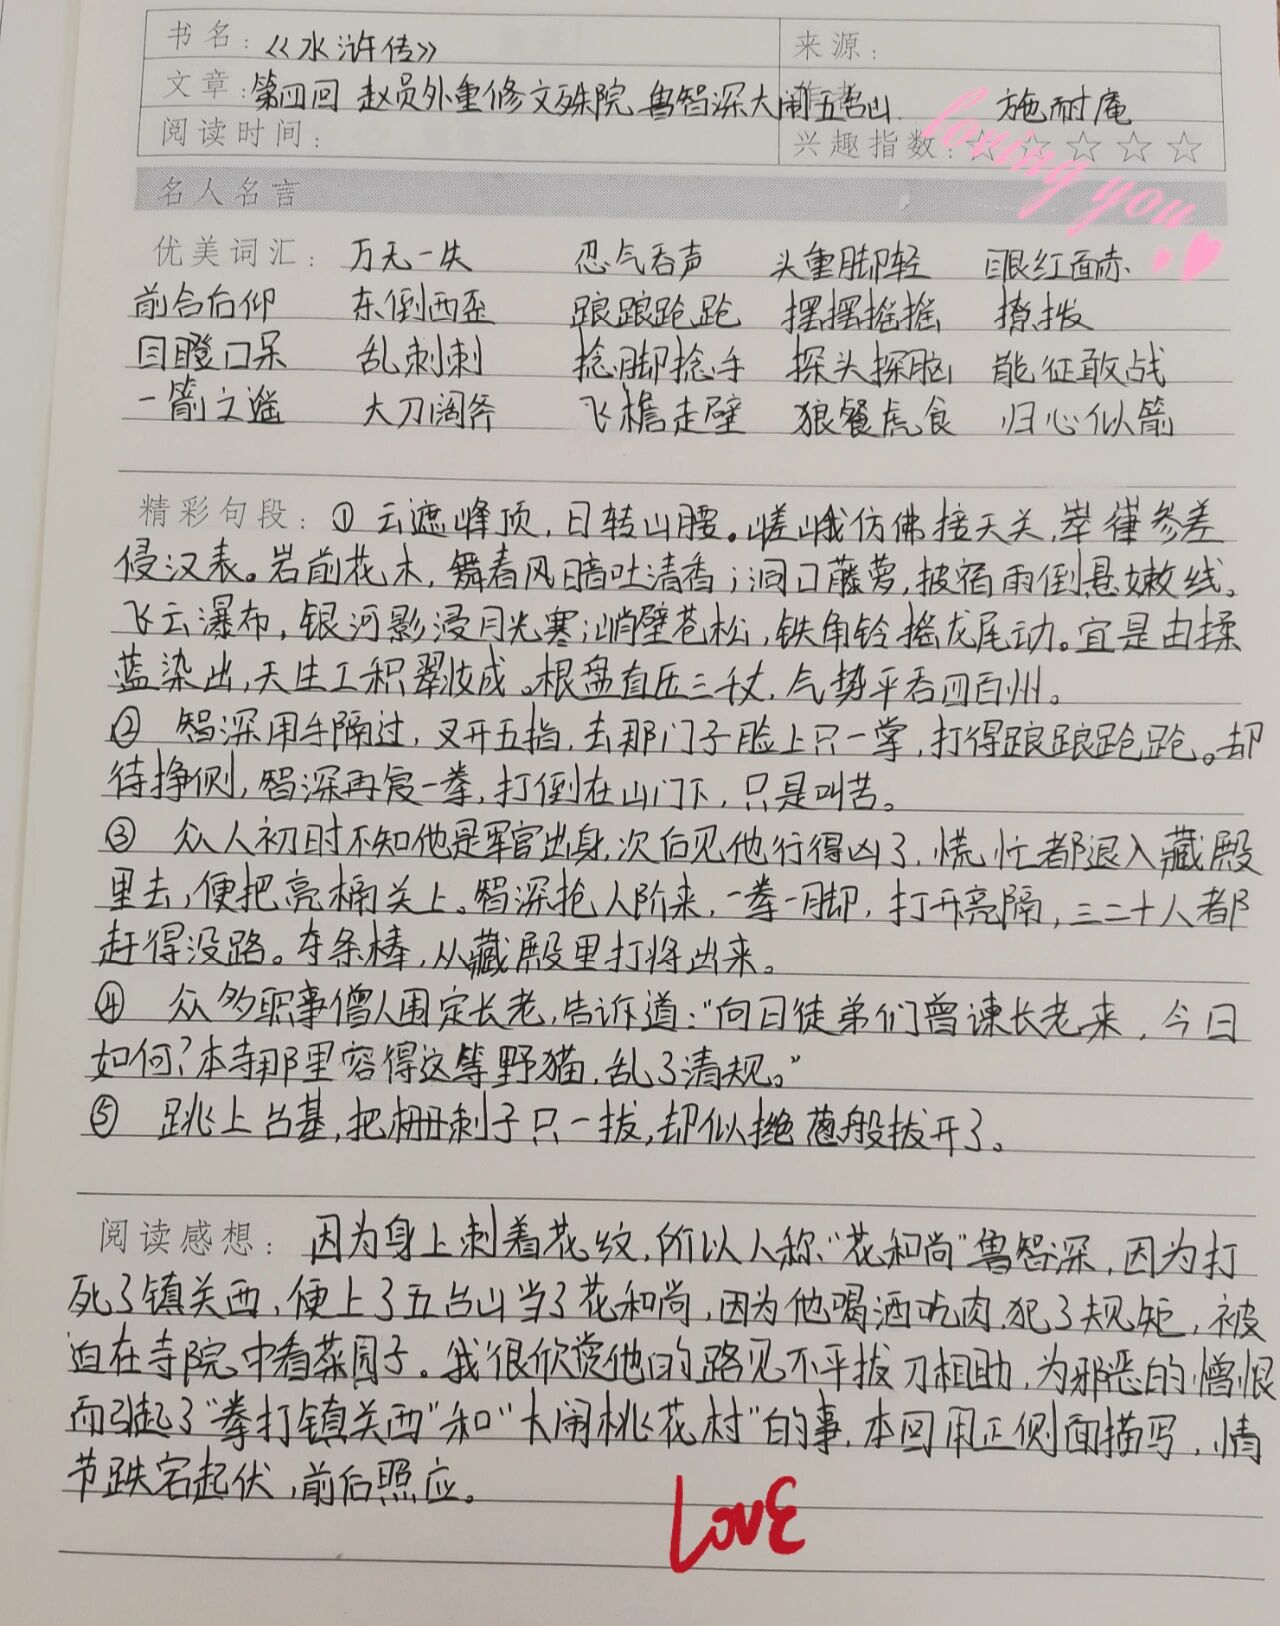 书名：《水浒传》 来源：
文章：第四回 赵员外重修文殊院 鲁智深大闹五台山 施耐庵
阅读时间： 兴趣指数：☆☆☆☆☆
loving you
名人名言
优美词汇： 万无一失 忍气吞声 头重脚轻 眼红面赤
前合后仰 东倒西歪 踉踉跄跄 摆摆摇摇 撩拨
目瞪口呆 乱刺刺 捻脚捻手 探头探脑 能征敢战
一箭之遥 大刀阔斧 飞檐走壁 狼餐虎食 归心似箭
精彩句段：① 云遮峰顶，日转山腰。嵯峨仿佛接天关，崒嵂参差
侵汉表。岩前花木，舞春风暗吐清香；洞口藤萝，披宿雨倒悬嫩线。
飞云瀑布，银河影浸月光寒；峭壁苍松，铁角铃摇龙尾动。宜是由揉
蓝染出，天生工积翠妆成。根盘直压三千丈，气势平吞四百州。
② 智深用手隔过，叉开五指，去那门子脸上只一掌，打得踉踉跄跄。却
待挣侧，智深再复一拳，打倒在山门下，只是叫苦。
③ 众人初时不知他是军官出身，次后见他行得凶了，慌忙都退入藏殿
里去，便把亮槅关上。智深抢入阶来，一拳一脚，打开亮隔，三二十人都
赶得没路。夺条棒，从藏殿里打将出来。
④ 众多职事僧人围定长老，告诉道：“向日徒弟们曾谏长老来，今日
如何？本寺那里容得这等野猫，乱了清规。”
⑤ 跳上台基，把栅剌子只一拔，却似撧葱般拔开了。
阅读感想： 因为身上刺着花纹，所以人称“花和尚”鲁智深，因为打
死了镇关西，便上了五台山当了花和尚，因为他喝酒吃肉，犯了规矩，被
迫在寺院中看菜园子。我很欣赏他的路见不平拔刀相助，为邪恶的憎恨
而引起了“拳打镇关西”和“大闹桃花村”的事，本回用正侧面描写，情
节跌宕起伏，前后照应。
LOVE